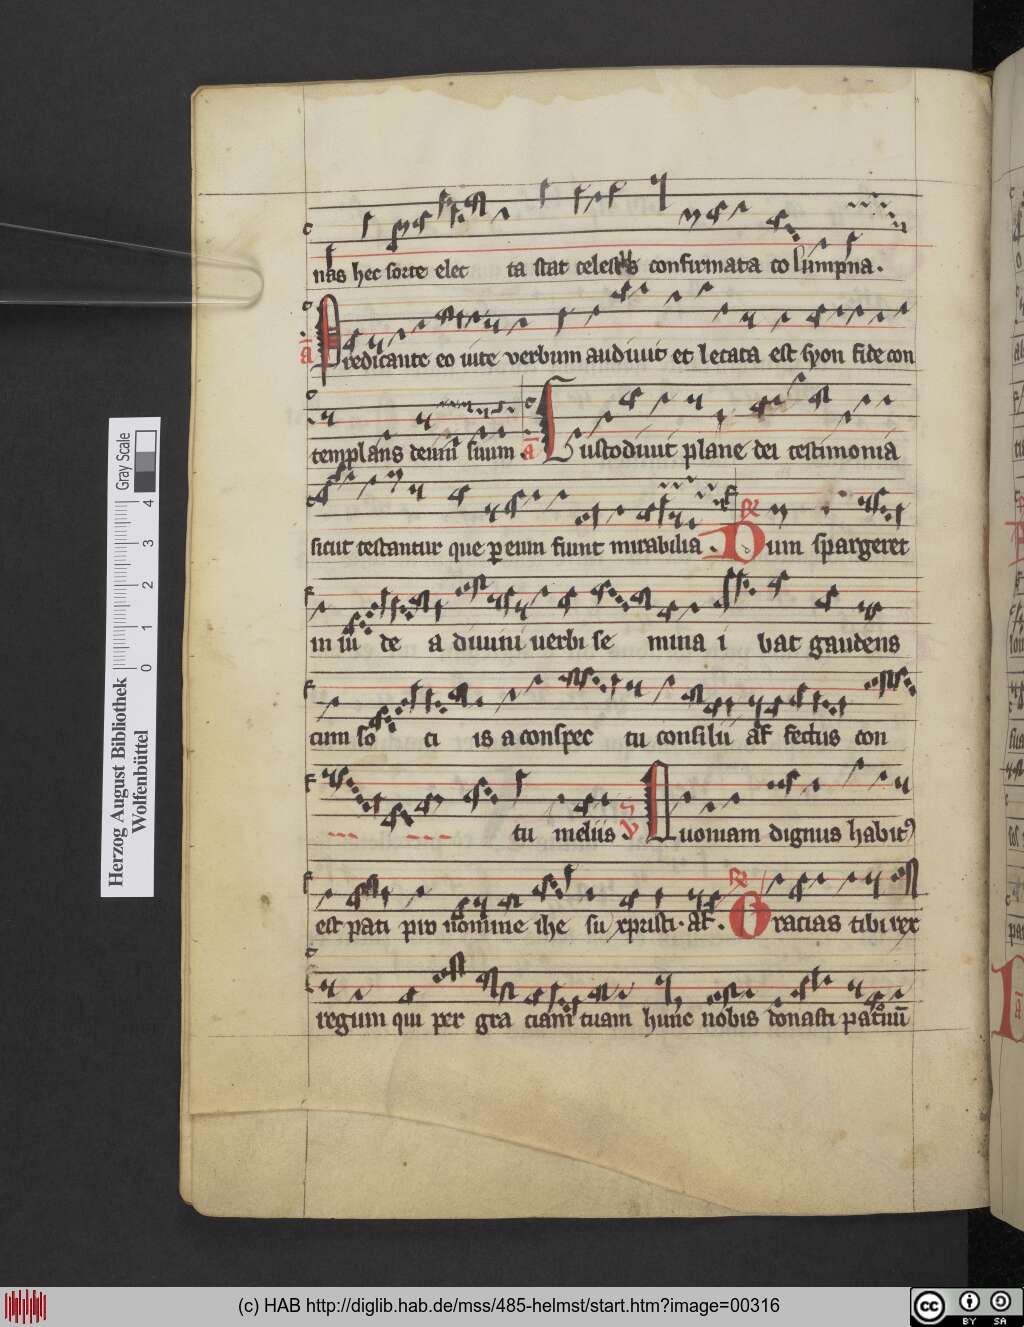 nas hec sorte elec ta stat celestis confirmata columpna.
a Predicante eo vite verbum audiuit et letata est syon fide con
templans deum suum. a Custodiuit plane dei testimonia
sicut testantur que per eum fiunt mirabilia. R Dum spargeret
in iu de a diuini uerbi se mina i bat gaudens
cum so ci is a conspec tu consilii af fectus con
tu melus V Quoniam dignus habit9
est pati pro nomine ihe su xpristi. af. R Gracias tibi rex
regum qui per gra ciam tuam hunc nobis donasti patronū
Herzog August Bibliothek
Wolfenbüttel
Gray Scale
0 1 2 3 4
(c) HAB http://diglib.hab.de/mss/485-helmst/start.htm?image=00316
cc BY SA